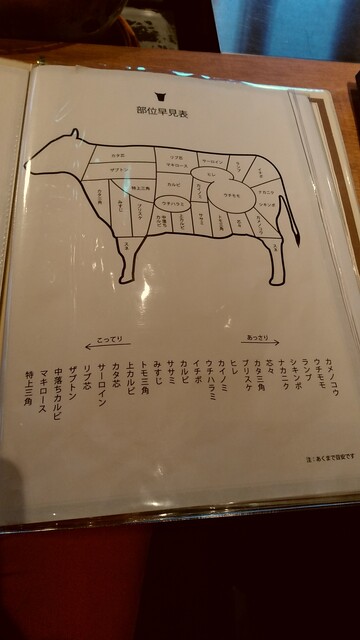 部位早見表
カタ芯
ザブトン
リブ芯
マキロース
サーロイン
ランプ
イチボ
ヒレ
カタ三角
みすじ
特上三角
ブリスケ
カルビ
ウチハラミ
中落ち
カルビ
上カルビ
カイノミ
ササミ
ウチモモ
トモ三角
芯々
ナカニク
シキンボ
カメノコウ
スネ
スネ
こってり
あっさり
カメノコウ
ウチモモ
ランプ
シキンボ
ナカニク
芯々
カタ三角
ブリスケ
ヒレ
カイノミ
ウチハラミ
イチボ
カルビ
ササミ
みすじ
トモ三角
上カルビ
カタ芯
サーロイン
リブ芯
ザブトン
中落ちカルビ
マキロース
特上三角
注：あくまで目安です